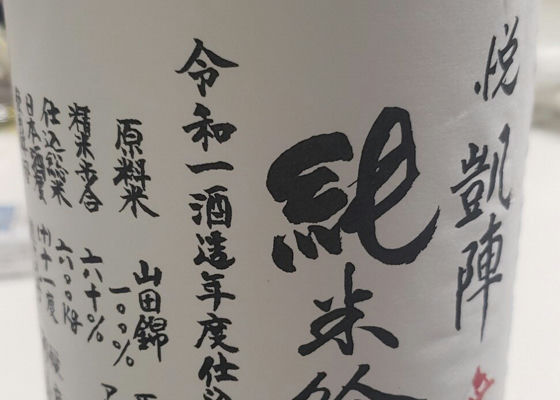 悦凱陣
純米吟
令和一酒造年度仕込
原料米 山田錦 一〇〇%
精米歩合 六十%
仕込総米 六〇〇kg
日本酒度 (+)十一度